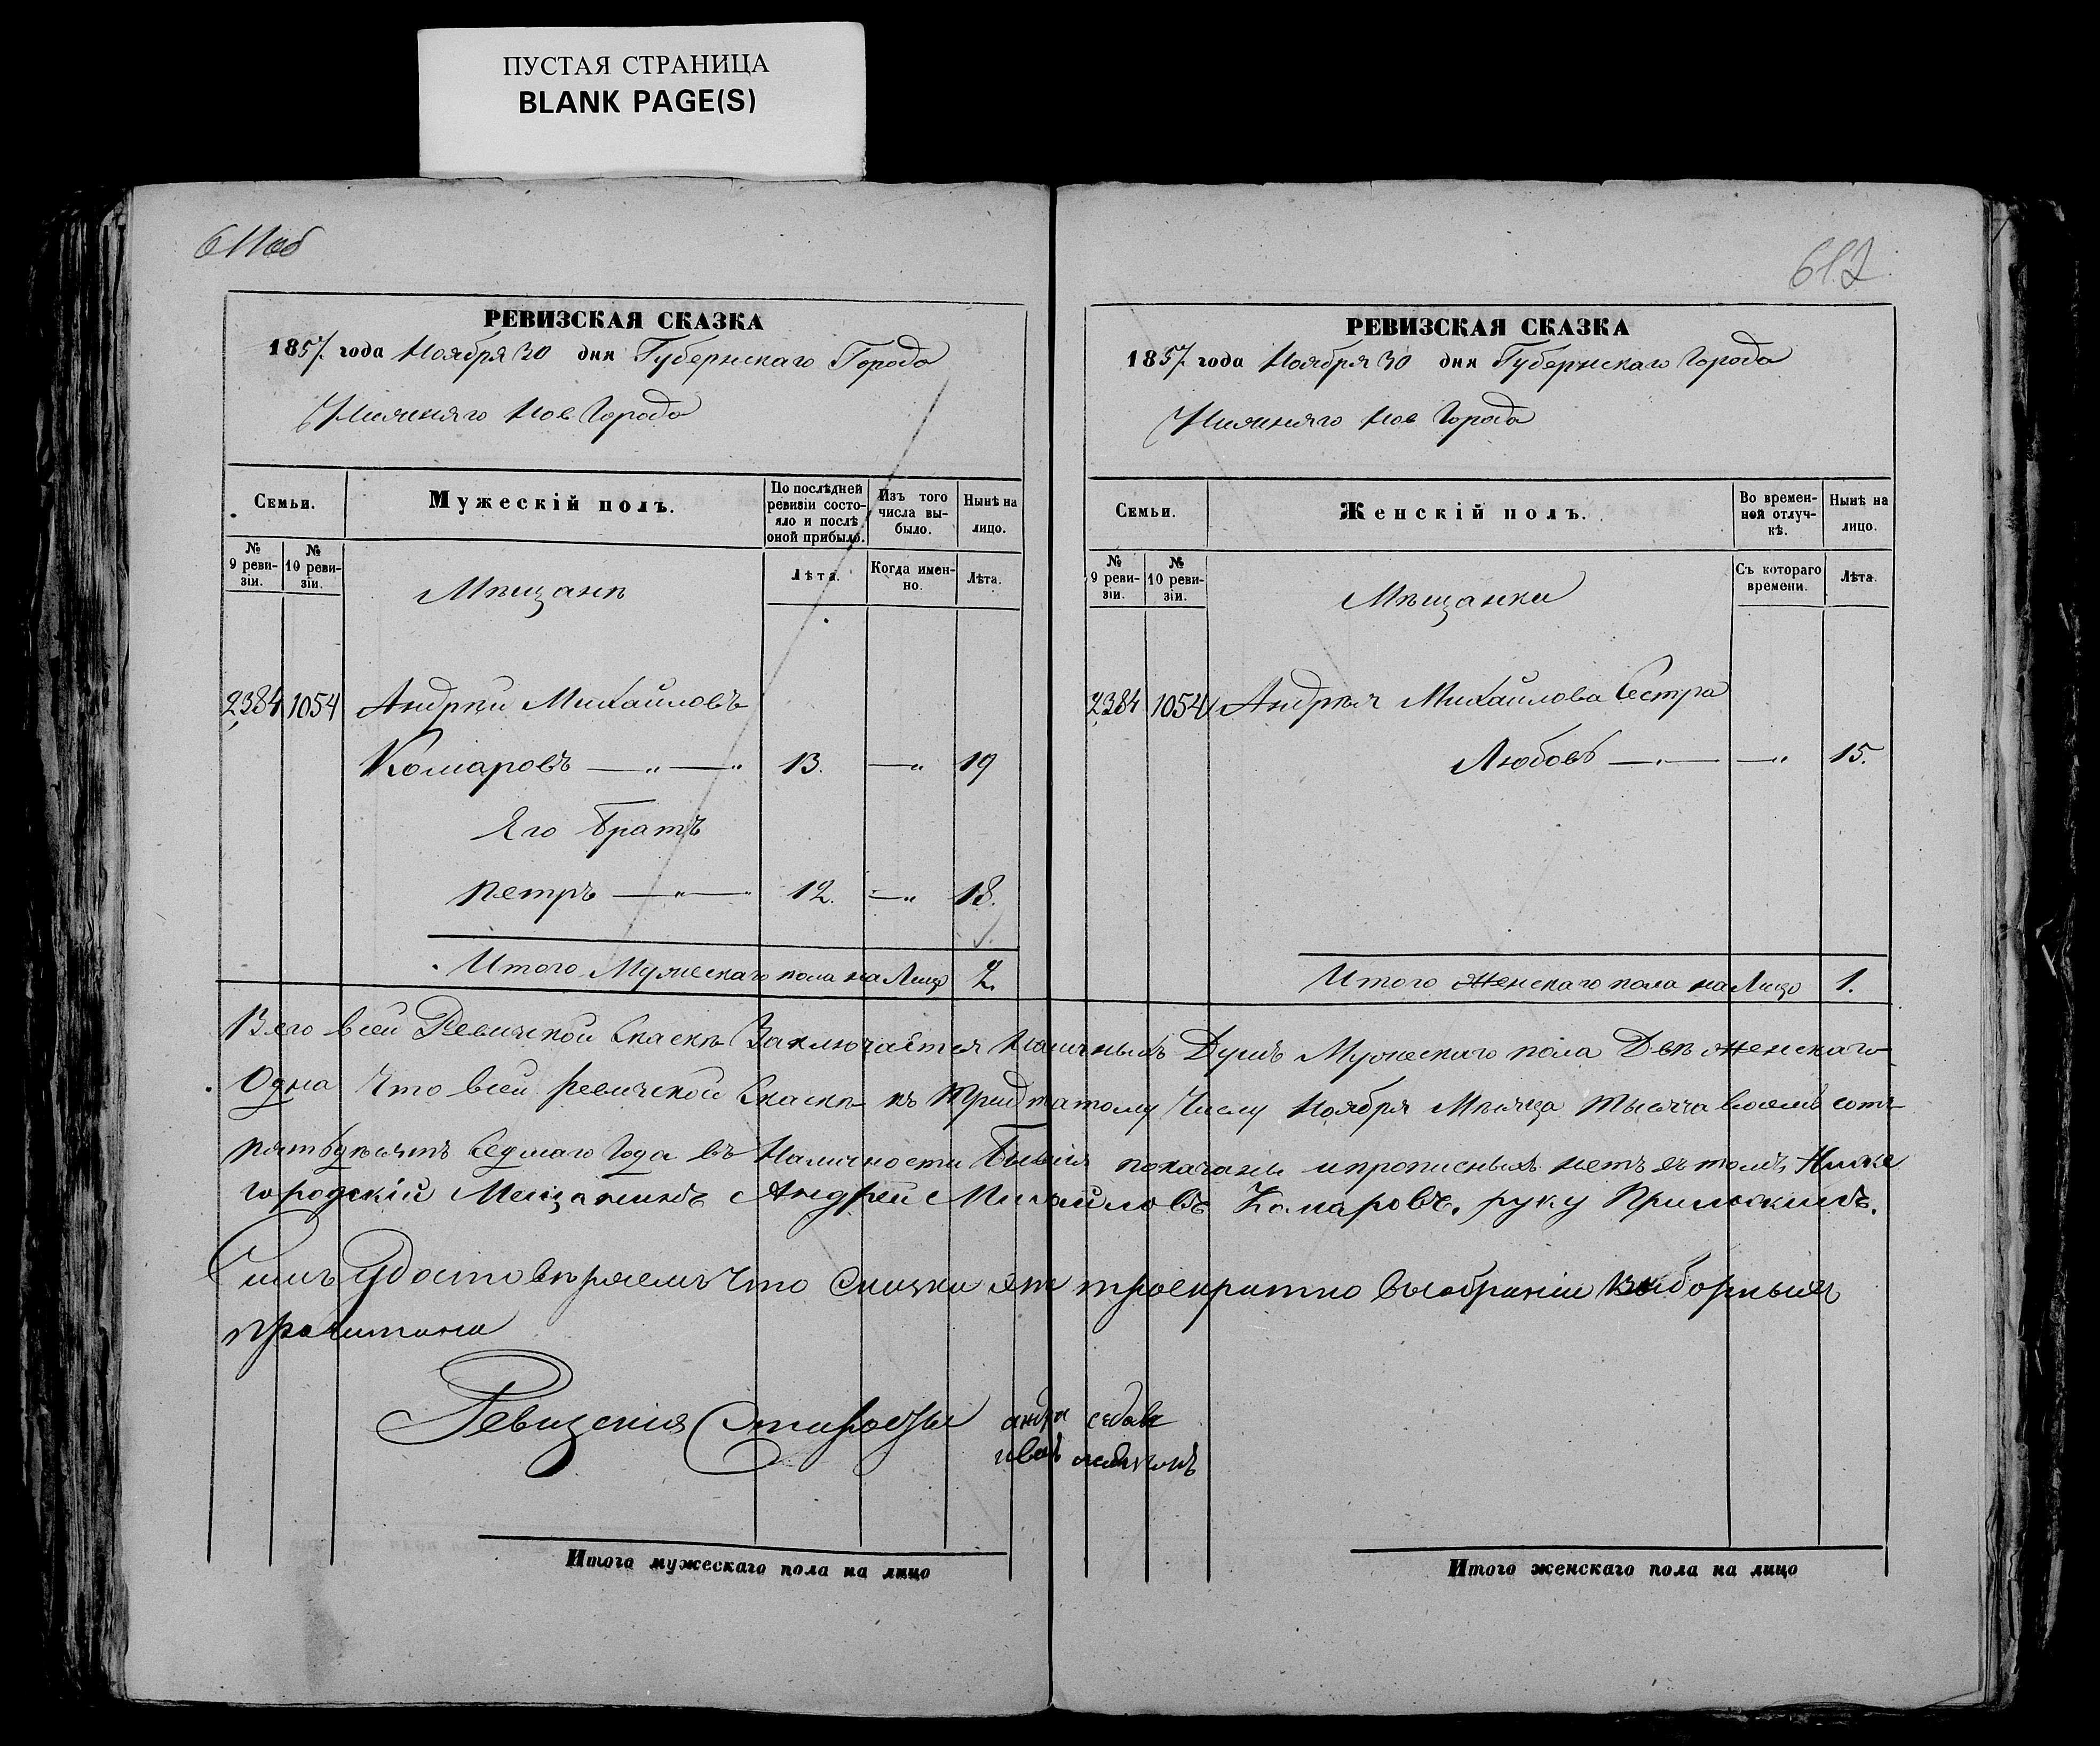 ПУСТАЯ СТРАНИЦА
BLANK PAGE(S)
611 об
РЕВИЗСКАЯ СКАЗКА
1857 года Ноября 30 дня Губернскаго Города
Нижняго Нов Города
Семьи.
Мужескій полъ.
По послѣдней ревизіи состояло и послѣ оной прибыло.
Изъ того числа выбыло.
Нынѣ на лицо.
№ 9 ревизіи.
№ 10 ревизіи.
Мѣщанъ
Лѣта.
Когда именно.
Лѣта.
2384 1054 Андрѣй Михайловъ
Комаровъ —„—„ 13. —„ 19
Его братъ
Петръ —„— 12. —„ 18.
Итого Мужескаго пола на Лицо 2.
612
РЕВИЗСКАЯ СКАЗКА
1857 года Ноября 30 дня Губернскаго Города
Нижняго Нов Города
Семьи.
Женскій полъ.
Во временной отлучкѣ.
Нынѣ на лицо.
№ 9 ревизіи.
№ 10 ревизіи.
Мѣщанки
Съ котораго времени.
Лѣта.
2384 1054 Андрѣя Михайлова Сестра
Любовь —„— —„ 15.
Итого Женскаго пола на Лицо 1.
Всего всей Ревичской Скаскѣ Заключается Наличныхъ Душъ Мужескаго пола Двѣ женскаго
Одна Что всей ревичской Скаскѣ къ Тридцатому Числу Ноября Мѣсяца Тысяча восемь сотъ
пятьдѣсятъ Седмаго Года въ Наличности Бывшія показаны и прописныхъ нетъ въ томъ Ниже
городскій Мещанинъ Андрей Михайловъ Комаровъ. руку Приложилъ.
Симъ Удостовѣряемъ Что Сказка эта троекратно Высобраніи Выборныхъ
прочитана
Ревизскія Старосты
Итого мужескаго пола на лицо
Итого женскаго пола на лицо